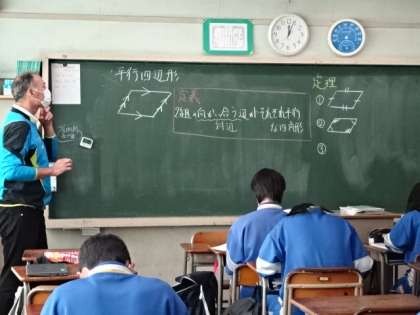 平行四辺形
定義
2組の向かい合う辺がそれぞれ平行
対辺
な四角形
定理
①
②
③